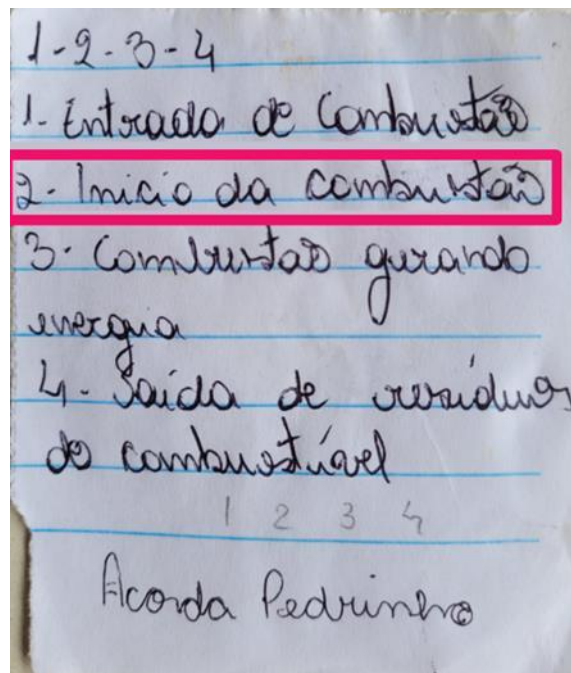 1-2-3-4
1- Entrada de Combustão
2- Inicio da combustão
3- Combustão gerando
energia
4- Saída de resíduos
do combustível
1 2 3 4
Acorda Pedrinho